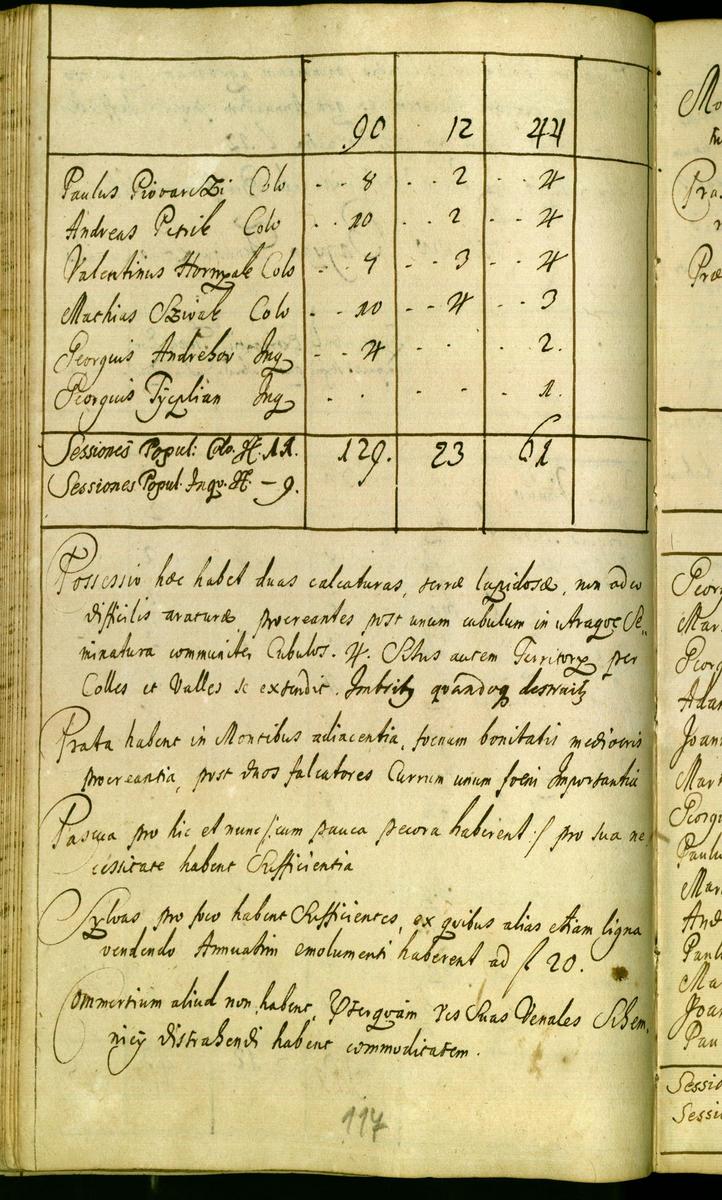 90 12 44
Paulus Piovarczi Colo - - 8 - - 2 - - 4
Andreas Petrik Colo - - 10 - - 2 - - 4
Valentinus Hornyak Colo - - 7 - - 3 - - 4
Mathias Sziwak Colo - - 10 - - 4 - - 3
Georgius Andrehov Inq - - 4 - - - 2.
Georgius Inq - - - - - 1.
Sessiones Popul: Colo. H. 11. 129. 23 61
Sessiones Popul. Inqv. H - 9.
Possessio hæc habet duas calcaturas, terræ lapidosæ, non adeo
difficilis araturæ, procreantes post unum cubulum in utraque Se„
minatura communiter Cubulos. 4. Situs autem Territorij per
Colles et Valles se extendit. Imbrib9 quandoq destruitur
Prata habent in Montibus adiacentia, foenum bonitatis mediocris
procreantia, post duos falcatores Currum unum foeni Importantia
Pascua pro hic et nunc /: cum pauca pecora haberent :/ pro sua ne
cessitate habent Sufficientia
Sylvas pro foco habent Sufficientes, ex quibus alias etiam ligna
vendendo Annuatim emolumenti haberent ad f 20.
Commertium aliud non habent, Pterquam res Suas Venales Schem„
nicij distrahendi habent commoditatem.
117
Mo
Pra
Præ
Georg
Mar
Georg
Adam
Joann
Mart
Georgi
Paulu
Mar
And
Paul
Ma
Joan
Pau
Sessio
Sessi